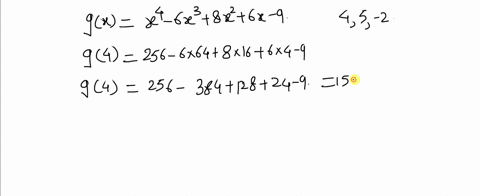 g(x) = x⁴-6x³+8x²+6x-9. 4,5,-2
g(4) = 256-6×64+8×16+6×4-9
g(4) = 256- 384+128+24-9. =15